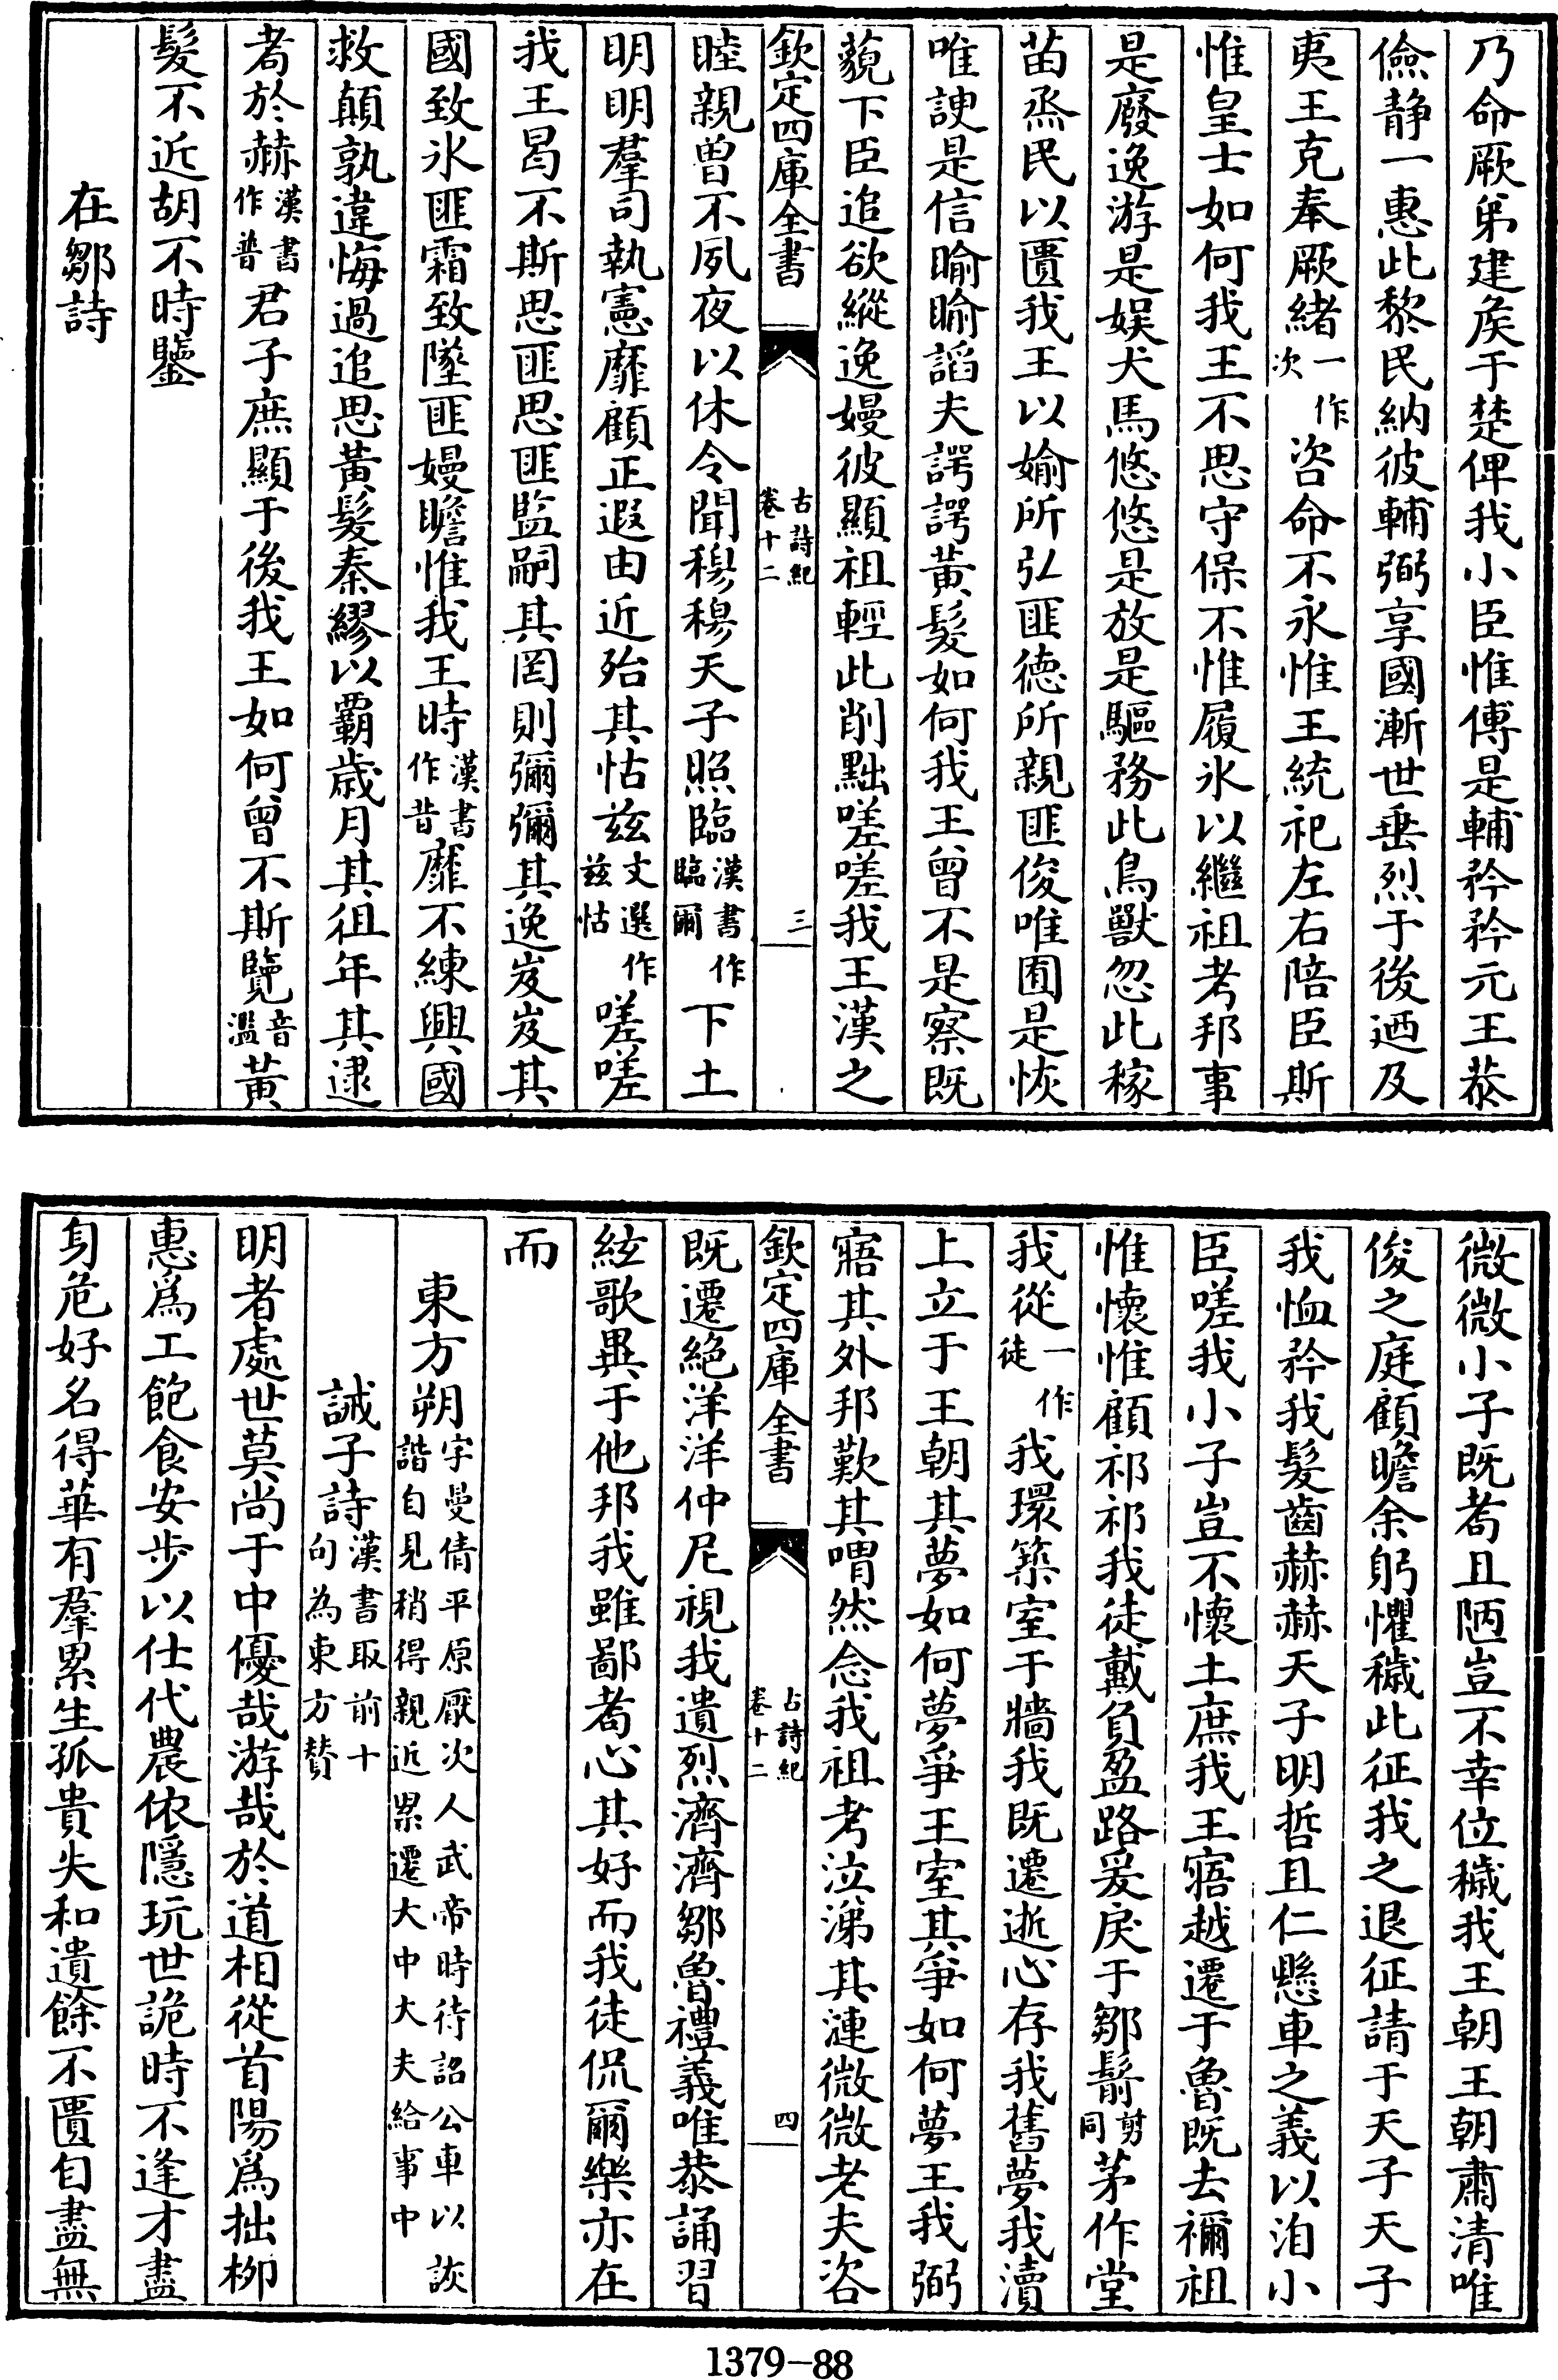 乃命厥弟建矦于楚俾我小臣惟傅是輔矜矜元王恭
儉静一惠此黎民納彼輔弼享國漸世垂烈于後迺及
夷王克奉厥緒一作次咨命不永惟王統祀左右陪臣斯
惟皇士如何我王不思守保不惟履氷以繼祖考邦事
是廢逸游是娱犬馬悠悠是放是驅務此鳥獸忽此稼
苗烝民以匱我王以媮所弘匪德所親匪俊唯囿是恢
唯諛是信睮睮謟夫諤諤黃髮如何我王曾不是察既
藐下臣追欲縱逸嫚彼顯祖輕此削黜嗟嗟我王漢之
欽定四庫全書 古詩紀卷十二 三
睦親曾不夙夜以休令聞穆穆天子照臨漢書作臨爾下土
明明羣司執憲靡顧正遐由近殆其怙兹文選作兹怙嗟嗟
我王曷不斯思匪思匪監嗣其罔則彌彌其逸岌岌其
國致氷匪霜致墜匪嫚瞻惟我王時漢書作昔靡不練興國
救顛孰違悔過追思黃髮秦繆以霸歲月其徂年其逮
耇於赫漢書作普君子庶顯于後我王如何曾不斯覽音濫黃
髮不近胡不時鑒
在鄒詩
微微小子既耇且陋豈不幸位穢我王朝王朝肅清唯
俊之庭顧瞻余躬懼穢此征我之退征請于天子天子
我恤矜我髮齒赫赫天子明哲且仁懸車之義以洎小
臣嗟我小子豈不懷土庶我王寤越遷于魯既去禰祖
惟懷惟顧祁祁我徒戴負盈路爰戾于鄒鬋剪同茅作堂
我從一作徒我環築室于牆我既遷逝心存我舊夢我瀆
上立于王朝其夢如何夢爭王室其爭如何夢王我弼
寤其外邦歎其喟然念我祖考泣涕其漣微微老夫咨
欽定四庫全書 古詩紀卷十二 四
既遷絕洋洋仲尼視我遺烈濟濟鄒魯禮義唯恭誦習
絃歌異于他邦我雖鄙耇心其好而我徒侃爾樂亦在
而
東方朔字曼倩平原厭次人武帝時待詔公車以詼諧自見稍得親近累遷大中大夫給事中
誡子詩漢書取前十句為東方贊
明者處世莫尚于中優哉游哉於道相從首陽爲拙柳
惠爲工飽食安步以仕代農依隱玩世詭時不逢才盡
身危好名得華有羣累生孤貴失和遺餘不匱自盡無
1379-88